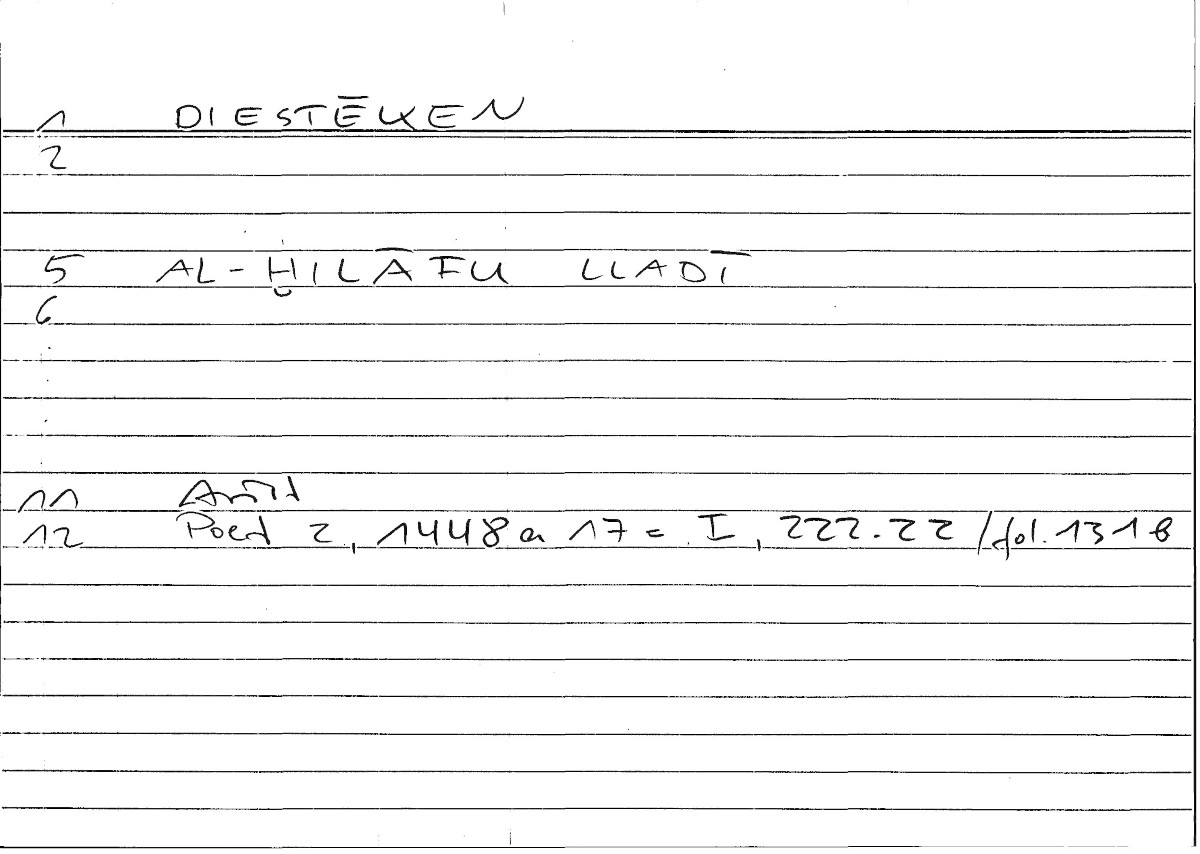 1 DIESTĒKEN
2
5 AL-ḪILĀFU LLADĪ
6
11 Arist
12 Poet 2, 1448a 17 = I, 222.22 / fol. 131b